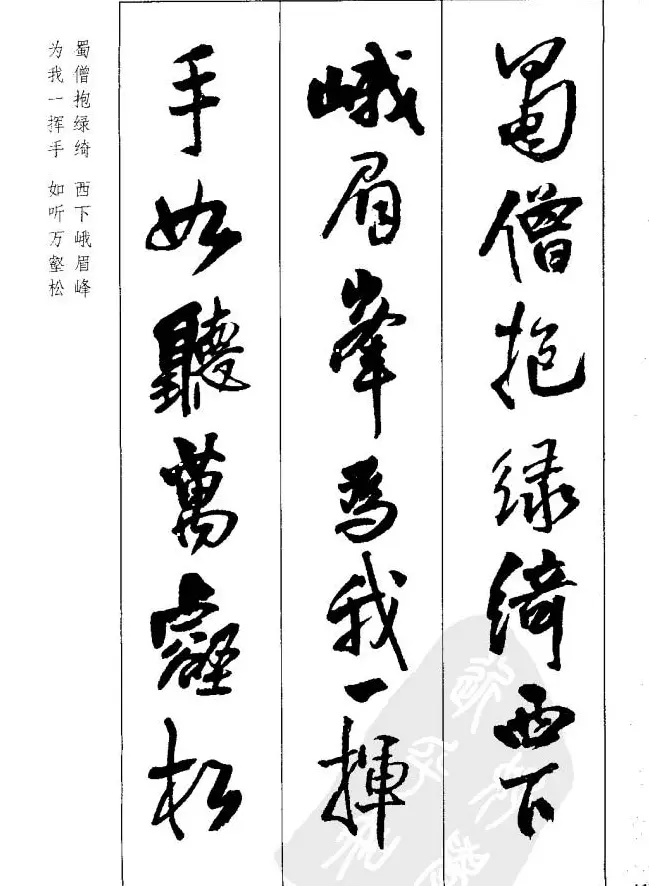 蜀僧抱绿绮西下
峨眉峯为我一揮
手如聽萬壑松
蜀僧抱绿绮 西下峨眉峰
为我一挥手 如听万壑松